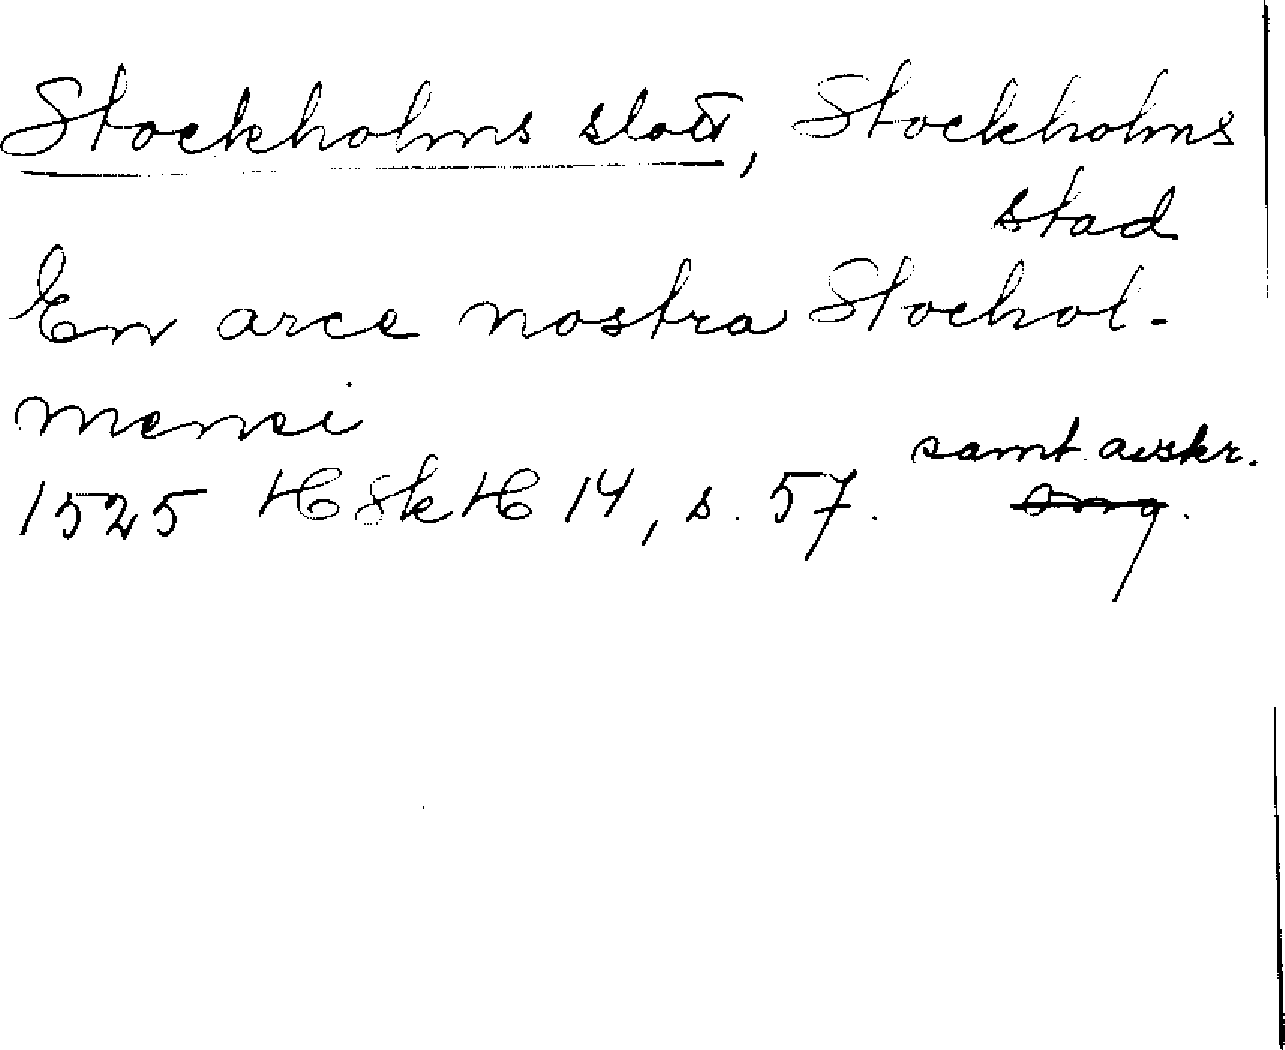 Stockholms slott, Stockholms
stad
En arce nostra Stochol-
mensi
samt avskr.
1525 HSkH 14, s. 57. orig.